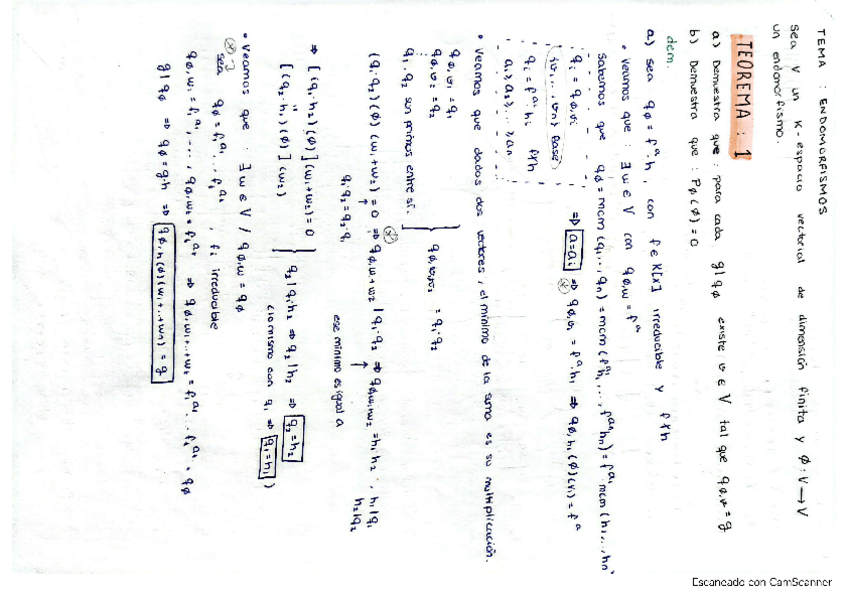 TEMA : ENDOMORFISMOS
Sea V un K-espacio vectorial de dimensión finita y ϕ: V → V
un endomorfismo.
TEOREMA : 1
a) Demuestra que : para cada g|qϕ existe v ∈ V tal que qϕ,v = g
b) Demuestra que : Pϕ(ϕ) = 0
dem.
a) sea qϕ = fᵃ·h, con f ∈ K[x] irreducible y f∤h
• Veamos que : ∃w ∈ V con qϕ,w = fᵃ
Sabemos que qϕ = mcm(q₁,..,qₙ) = mcm(fᵃ¹h₁,..., fᵃⁿhₙ) = fᵃ¹·mcm(h₁,..,hₙ)
qᵢ = qϕ,vᵢ
{v₁,..,vₙ} Base
qᵢ = fᵃⁱ·hᵢ f∤h
a₁ ≥ a₂ ≥ ... ≥ aₙ
⇒ a = aᵢ ⇒ qϕ,v₁ = fᵃ·h₁ ⇒ qϕ,h₁(ϕ)(v₁) = fᵃ
• Veamos que dados dos vectores, el mínimo de la suma es su multiplicación.
qϕ,v₁ = q₁
qϕ,v₂ = q₂
q₁, q₂ son primos entre sí.
} = q₁·q₂
(q₁·q₂)(ϕ)(w₁+w₂) = 0 ⇒ qϕ,w₁+w₂ | q₁·q₂ ⇒ qϕ,w₁+w₂ = h₁h₂, h₁|q₁
h₂|q₂
q₁·q₂ = q₂·q₁
ese mínimo es igual a
⇒ [(q₁·h₂)(ϕ)](w₁+w₂) = 0
[(q₁·h₂)(ϕ)](w₂)
} q₂|q₁h₂ ⇒ q₂|h₂ ⇒ q₂ = h₂
(lo mismo con q₁ ⇒ q₁ = h₁)
• Veamos que : ∃w ∈ V / qϕ,w = qϕ
sea qϕ = f₁ᵃ¹...fₜᵃᵗ, fᵢ irreducible
qϕ,w₁ = f₁ᵃ¹,..., qϕ,wₜ = fₜᵃᵗ ⇒ qϕ,w₁+..+wₜ = f₁ᵃ¹...fₜᵃᵗ = qϕ
g|qϕ ⇒ qϕ = g·h ⇒ qϕ,h(ϕ)(w₁+..+wₙ) = g
Escaneado con CamScanner